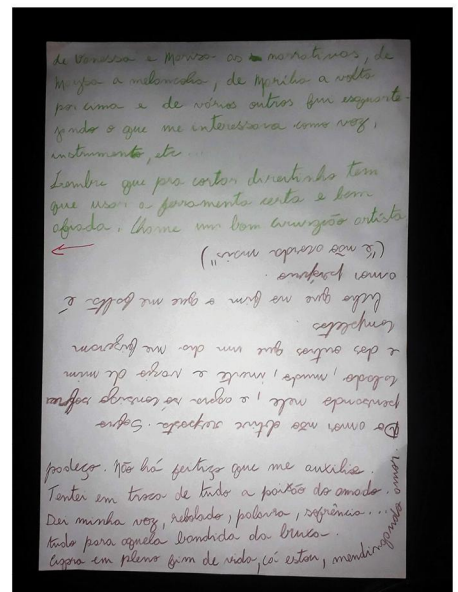 de Vanessa e as narrativas, de
Maysa a melancolia, de Marília a volta
por cima e de vários outros fui esquarte-
jando o que me interessava como voz,
instrumento, etc...
Lembre que pra cortar direitinho tem
que usar a ferramenta certa e bem
afiada. Chame um bom cirurgião artista
Do amor não obtive resposta. Sigo
pensando nele, e agora só consigo
mudo, inerte e vazio de mim
e dos outros que um dia me fizeram
completos
que no fim o que me falta é
amor próprio.
não acorda mais")
padeço. Não há feitiço que me auxilie.
Tentei em troca de tudo a paixão do amado.
Dei minha voz, rebolado, palavra, sofrência...
tudo para aquela bandida da bruxa.
Agora em pleno fim de vida, cá estou, mendingando amor.